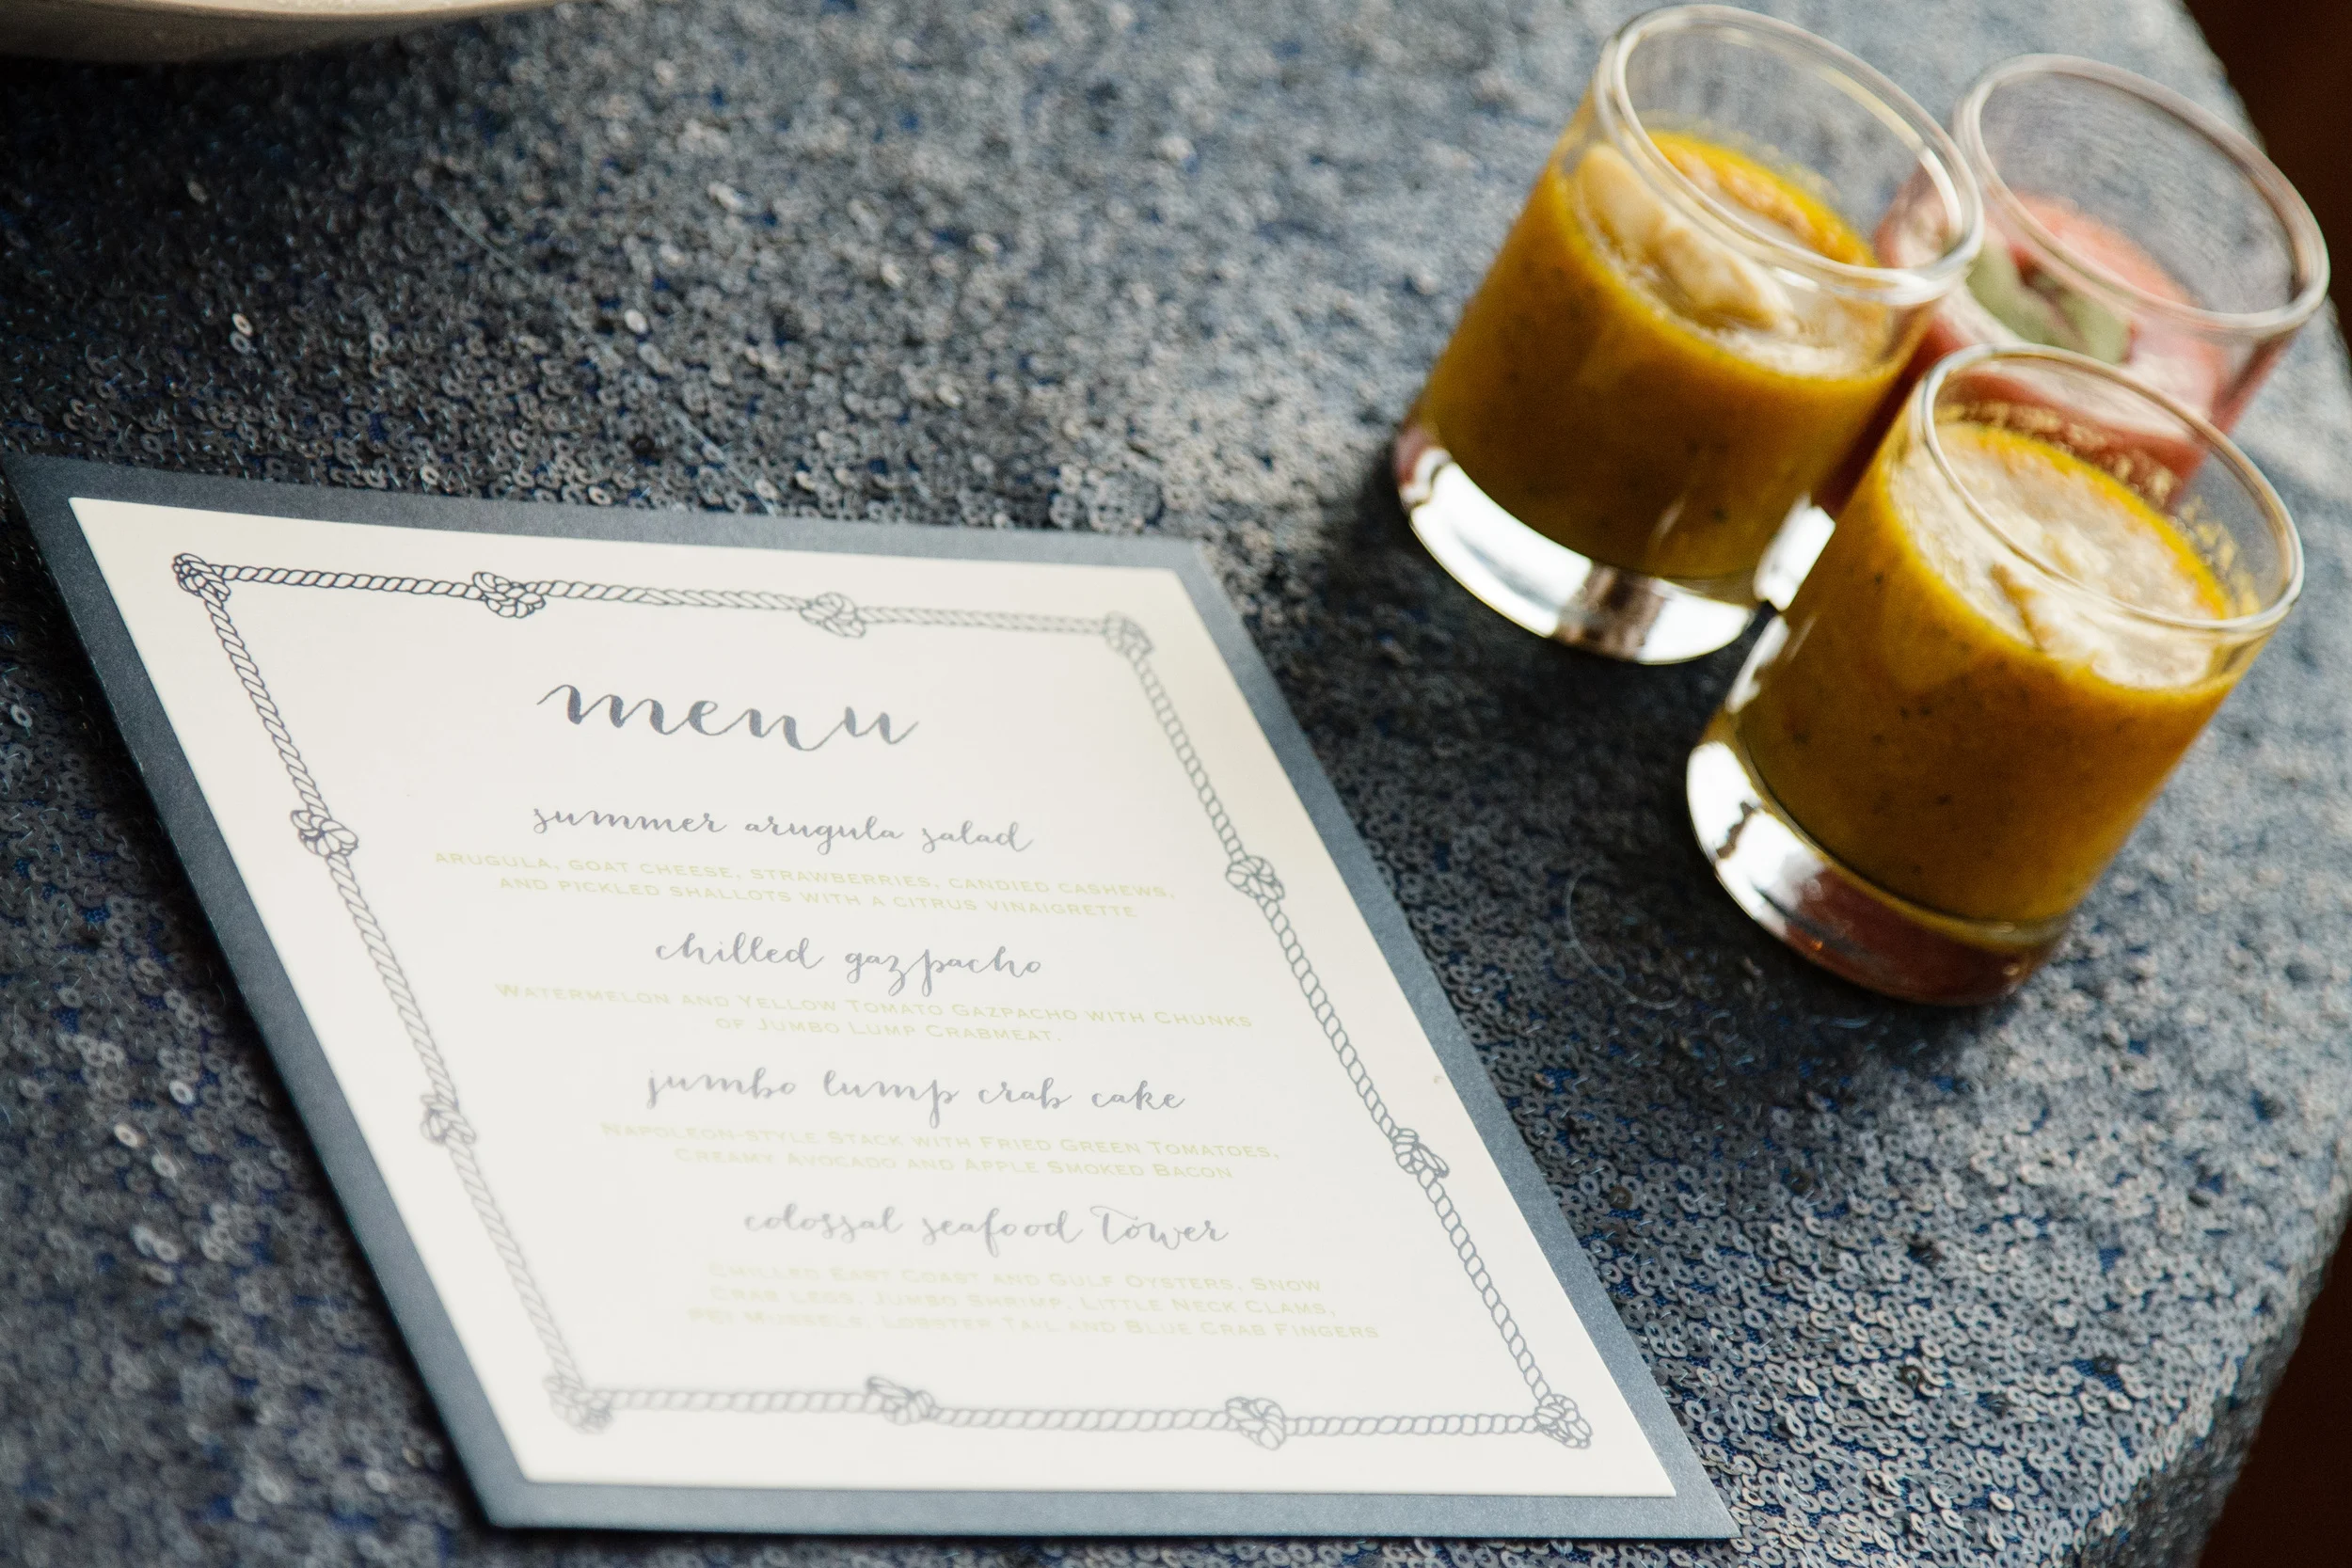 menu
summer arugula salad
ARUGULA, GOAT CHEESE, STRAWBERRIES, CANDIED CASHEWS,
AND PICKLED SHALLOTS WITH A CITRUS VINAIGRETTE
chilled gazpacho
WATERMELON AND YELLOW TOMATO GAZPACHO WITH CHUNKS
OF JUMBO LUMP CRABMEAT.
jumbo lump crab cake
NAPOLEON-STYLE STACK WITH FRIED GREEN TOMATOES,
CREAMY AVOCADO AND APPLE SMOKED BACON
colossal seafood tower
CHILLED EAST COAST AND GULF OYSTERS, SNOW
CRAB LEGS, JUMBO SHRIMP, LITTLE NECK CLAMS,
PEI MUSSELS, LOBSTER TAIL AND BLUE CRAB FINGERS